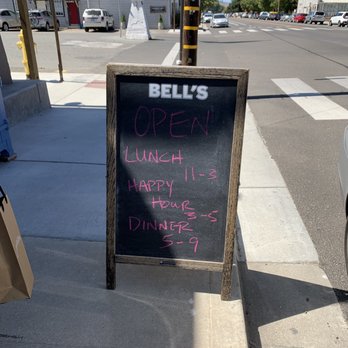 BELL'S
OPEN
LUNCH
11-3
HAPPY
HOUR
3-5
DINNER
5-9